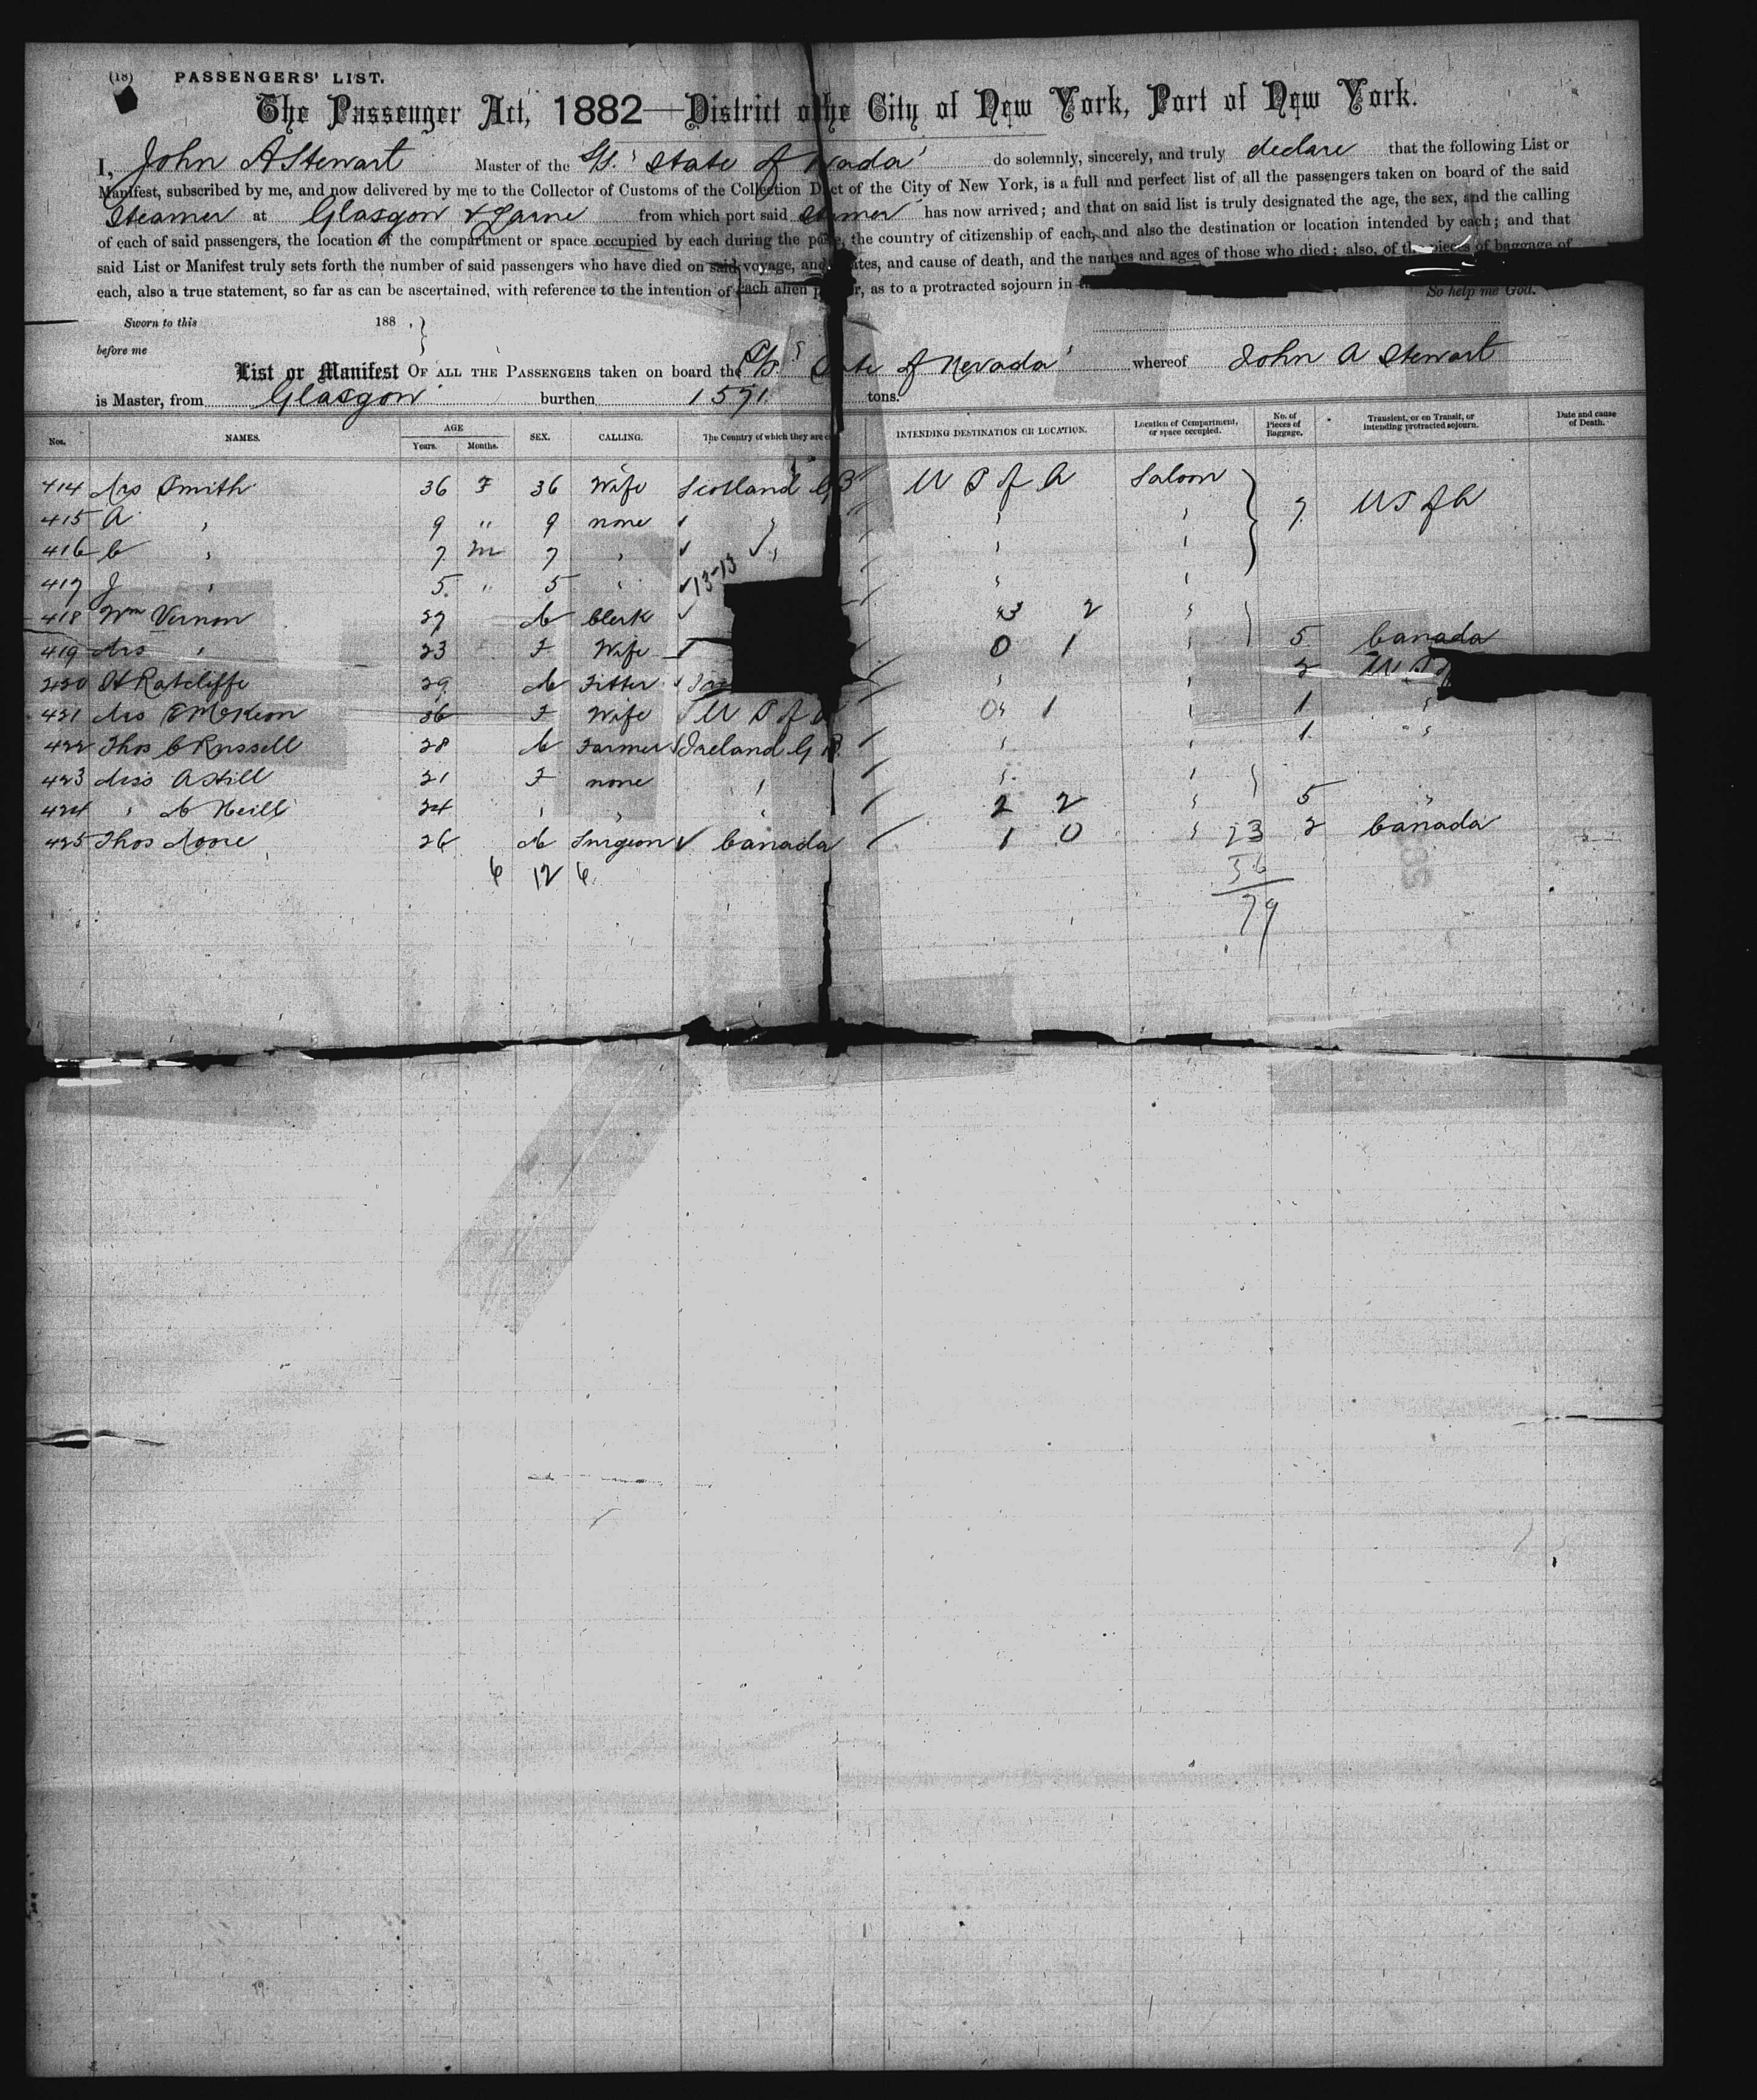 (18) PASSENGERS' LIST.
The Passenger Act, 1882—District o the City of New York, Port of New York.
I, John A Stewart Master of the S/S. "State of vada" do solemnly, sincerely, and truly declare that the following List or
Manifest, subscribed by me, and now delivered by me to the Collector of Customs of the Collection D ct of the City of New York, is a full and perfect list of all the passengers taken on board of the said
Steamer at Glasgow & Larne from which port said has now arrived; and that on said list is truly designated the age, the sex, and the calling
of each of said passengers, the location of the compartment or space occupied by each during the the country of citizenship of each, and also the destination or location intended by each; and that
said List or Manifest truly sets forth the number of said passengers who have died on said voyage, and ates, and cause of death, and the names and ages of those who died; also, of the pieces of baggage of
each, also a true statement, so far as can be ascertained, with reference to the intention of each alien p r, as to a protracted sojourn in
So help me God.
Sworn to this 188 , }
before me
List or Manifest OF ALL THE PASSENGERS taken on board the S/S. " ate of Nevada" whereof John A Stewart
is Master, from Glasgow burthen 1571 tons.
Nos. NAMES. AGE Years. Months. SEX. CALLING. The Country of which they are INTENDING DESTINATION OR LOCATION. Location of Compartment, or space occupied. No. of Pieces of Baggage. Transient, or en Transit, or intending protracted sojourn. Date and cause of Death.
414 Mrs Smith 36 F 36 Wife Scotland G B U S of A Saloon
415 A " 9 " 9 none " " " 7 U S of A
416 C " 7 M 7 " " " "
417 J " 5 " 5 " 13-13 " "
418 Wm Vernon 27 M Clerk 3 2 "
419 Mrs " 23 F Wife 0 1 " 5 Canada
420 H Ratcliffe 29 M Fitter " " 2 U S
421 Mrs McKeon 36 F Wife U S of 0 1 " 1 "
422 Thos C Russell 28 M Farmer Ireland G B " " 1 "
423 Miss A Hill 21 F none " " "
424 " M Neill 24 " " " 2 2 " 5 "
425 Thos Moore 26 M Surgeon Canada 1 0 " 23 2 Canada
6 12 6 56
79